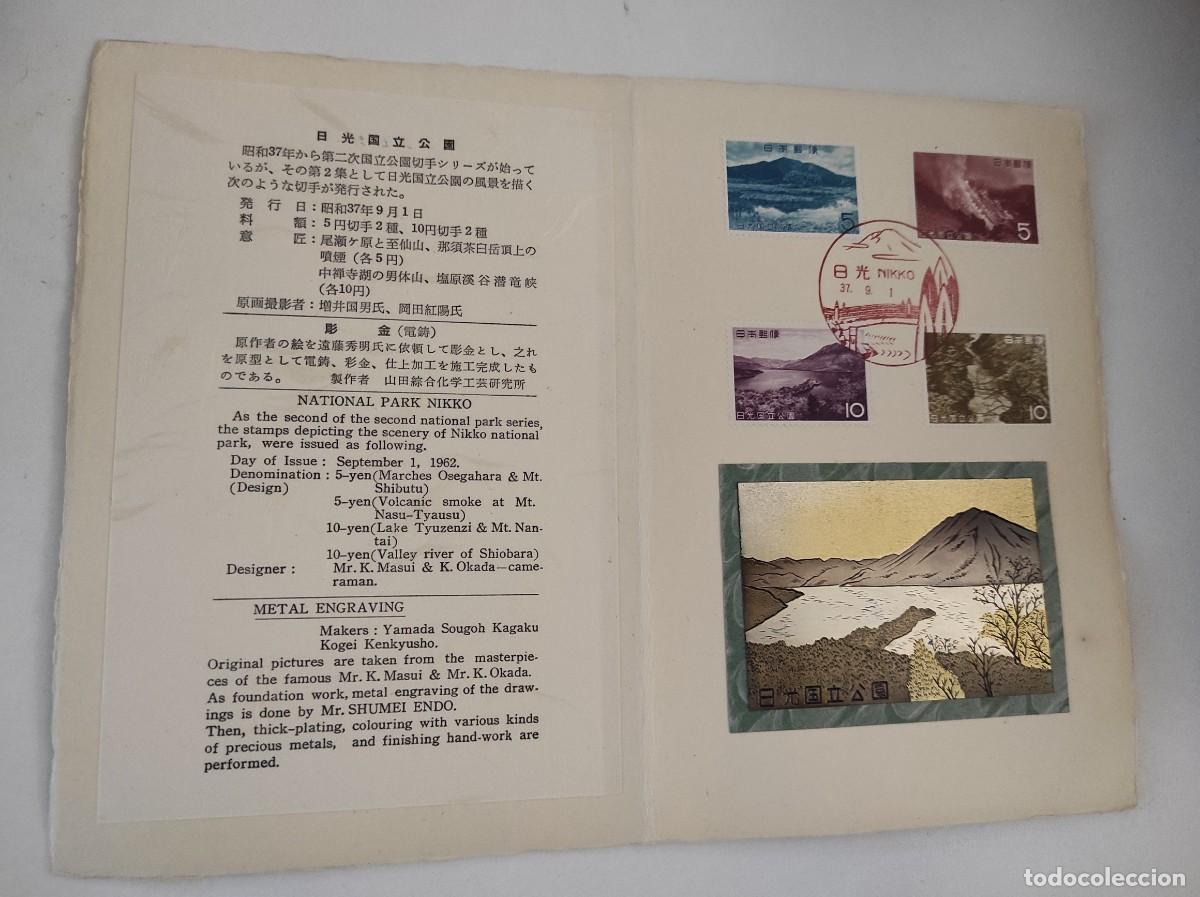 日光国立公園
昭和37年から第二次国立公園切手シリーズが始って
いるが、その第2集として日光国立公園の風景を描く
次のような切手が発行された。
発行日：昭和37年9月1日
料額：5円切手2種、10円切手2種
意匠：尾瀬ヶ原と至仙山、那須茶臼岳頂上の
噴煙（各5円）
中禅寺湖の男体山、塩原溪谷潜竜峡
（各10円）
原画撮影者：増井国男氏、岡田紅陽氏
彫金（電鋳）
原作者の絵を遠藤秀明氏に依頼して彫金とし、之れ
を原型として電鋳、彩金、仕上加工を施工完成したも
のである。 製作者 山田綜合化学工芸研究所
NATIONAL PARK NIKKO
As the second of the second national park series,
the stamps depicting the scenery of Nikko national
park, were issued as following.
Day of Issue : September 1, 1962.
Denomination : 5-yen(Marches Osegahara & Mt.
(Design) Shibutu)
5-yen(Volcanic smoke at Mt.
Nasu-Tyausu)
10-yen(Lake Tyuzenzi & Mt. Nan-
tai)
10-yen(Valley river of Shiobara)
Designer : Mr. K. Masui & K. Okada—came-
raman.
METAL ENGRAVING
Makers : Yamada Sougoh Kagaku
Kogei Kenkyusho.
Original pictures are taken from the masterpie-
ces of the famous Mr. K. Masui & Mr. K. Okada.
As foundation work, metal engraving of the draw-
ings is done by Mr. SHUMEI ENDO.
Then, thick-plating, colouring with various kinds
of precious metals, and finishing hand-work are
performed.
日本郵便
5
日本郵便
5
日光 NIKKO
37. 9. 1
日本郵便
日光国立公園
10
日本郵便
10
日光国立公園
todocoleccion